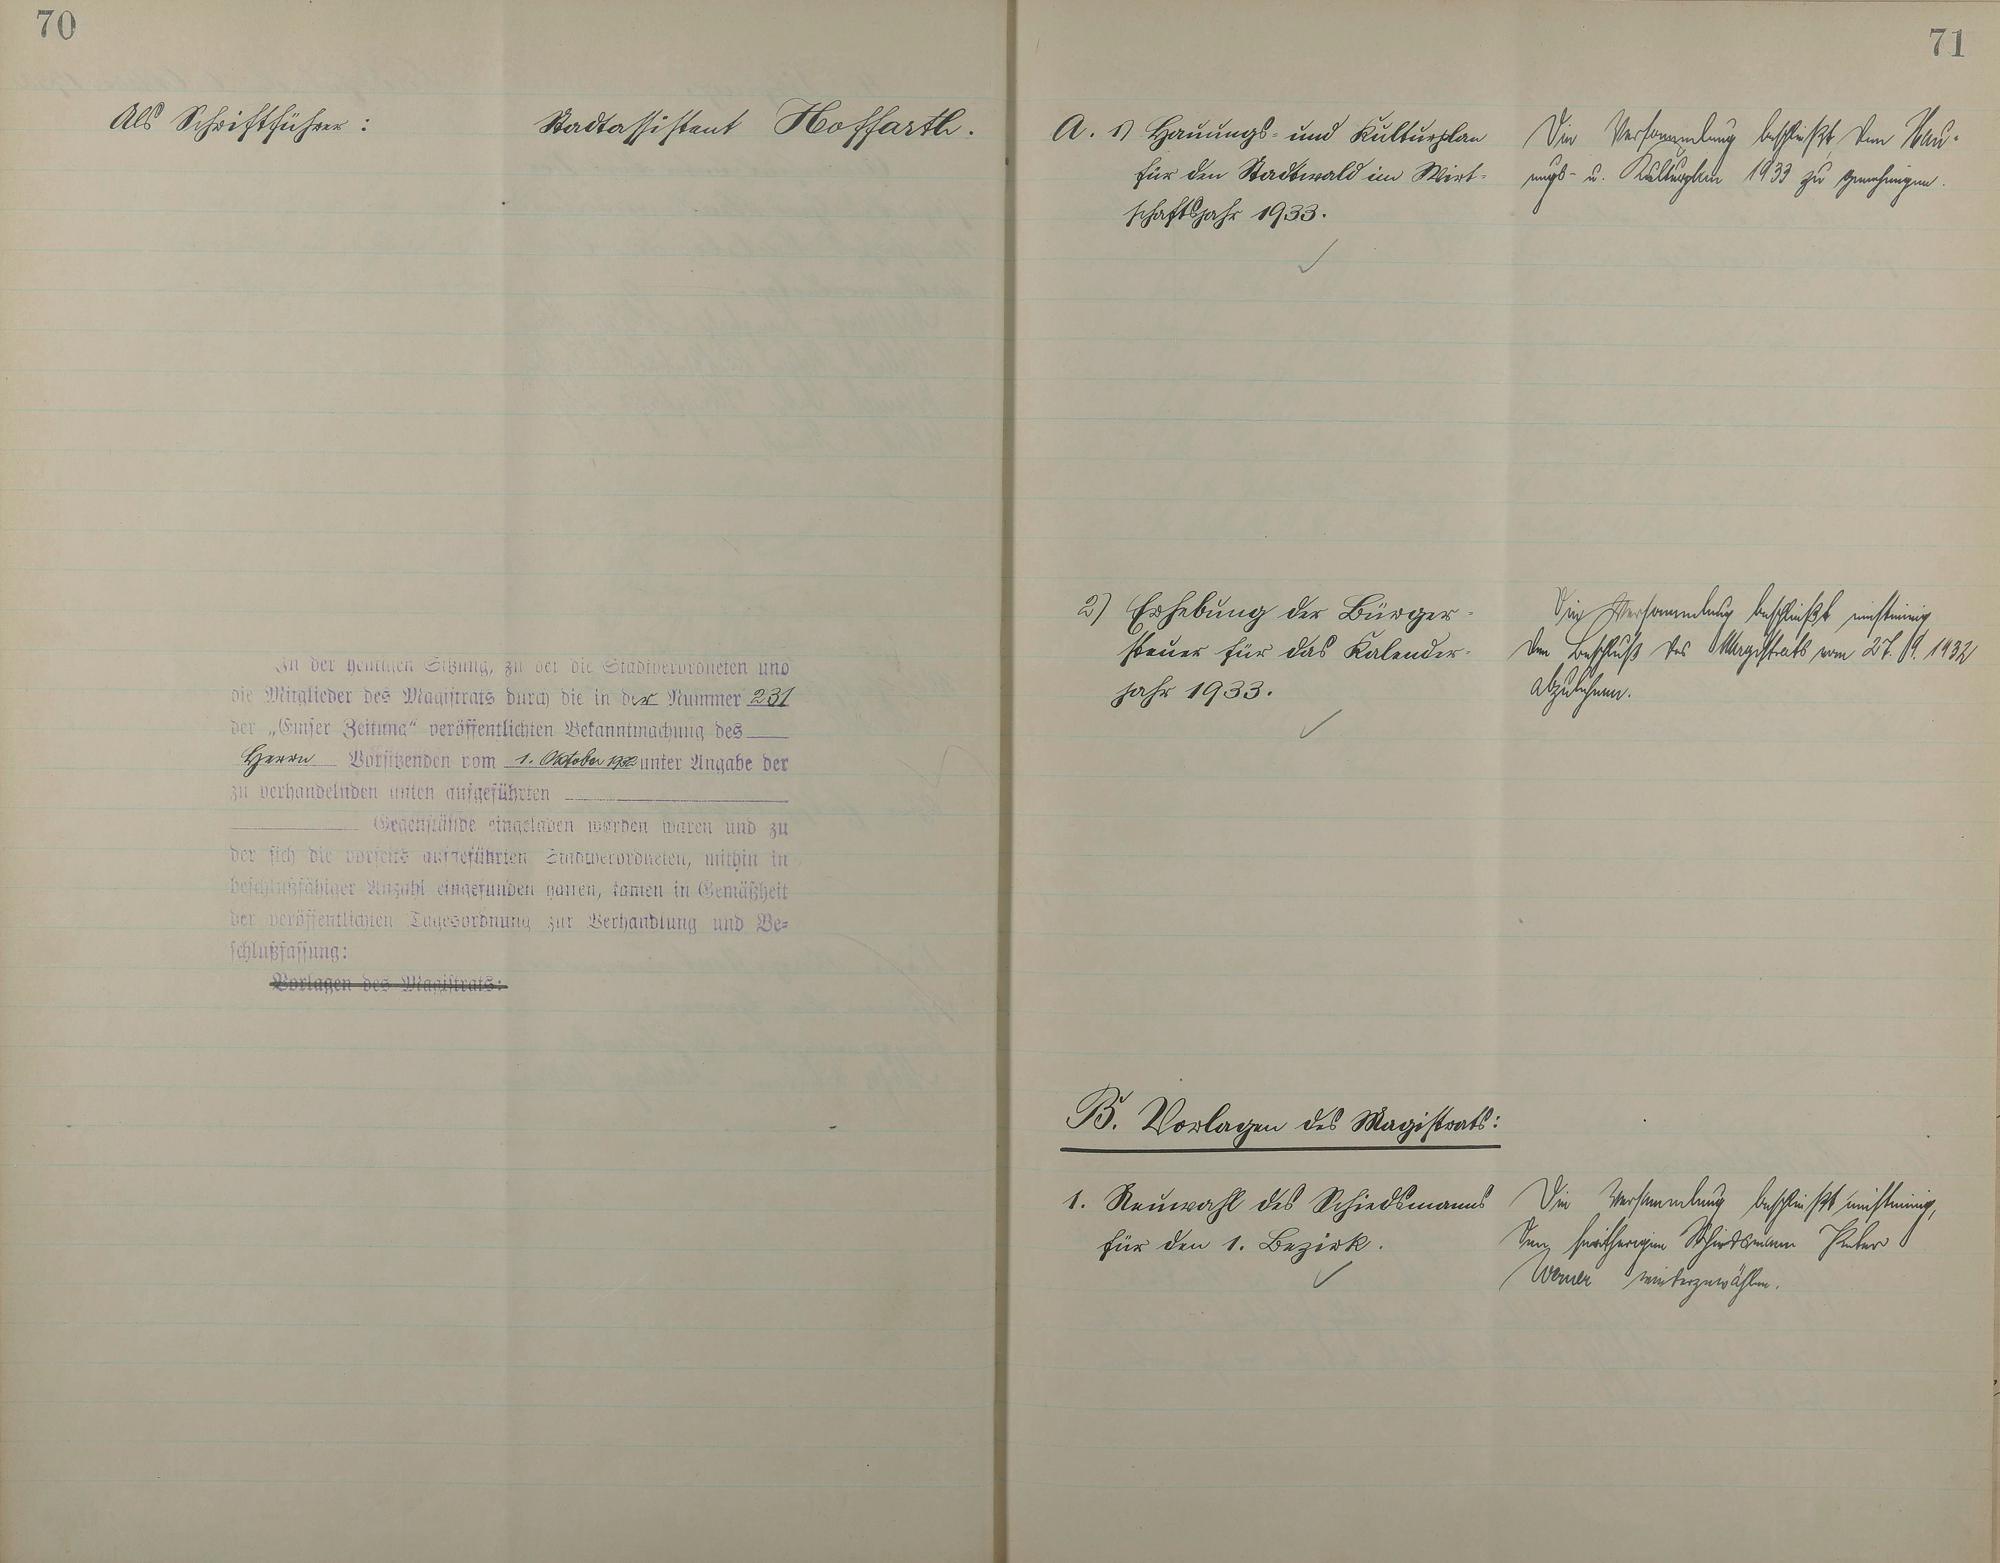 70
Als Schriftführer: Stadtassistent Hoffarth.
In der heutigen Sitzung, zu der die Stadtverordneten und
die Mitglieder des Magistrats durch die in der Nummer 231
der „Emser Zeitung“ veröffentlichten Bekanntmachung des
Herrn Vorsitzenden vom 1. Oktober 1932 unter Angabe der
zu verhandelnden unten aufgeführten
Gegenstände eingeladen worden waren und zu
der sich die vorseits aufgeführten Stadtverordneten, mithin in
beschlußfähiger Anzahl eingefunden hatten, kamen in Gemäßheit
der veröffentlichten Tagesordnung zur Verhandlung und Be-
schlußfassung:
Vorlagen des Magistrats:
71
A. 1) Hauungs- und Kulturplan
für den Stadtwald im Wirt-
schaftsjahr 1933.
Die Versammlung beschließt, den Hau-
ungs- u. Kulturplan 1933 zu genehmigen.
2) Erhebung der Bürger-
steuer für das Kalender-
jahr 1933.
Die Versammlung beschließt einstimmig
den Beschluß des Magistrats vom 27. 9. 1932
abzulehnen.
B. Vorlagen des Magistrats:
1. Neuwahl des Schiedsmanns
für den 1. Bezirk.
Die Versammlung beschließt einstimmig,
den seitherigen Schiedsmann
Werner wiederzuwählen.